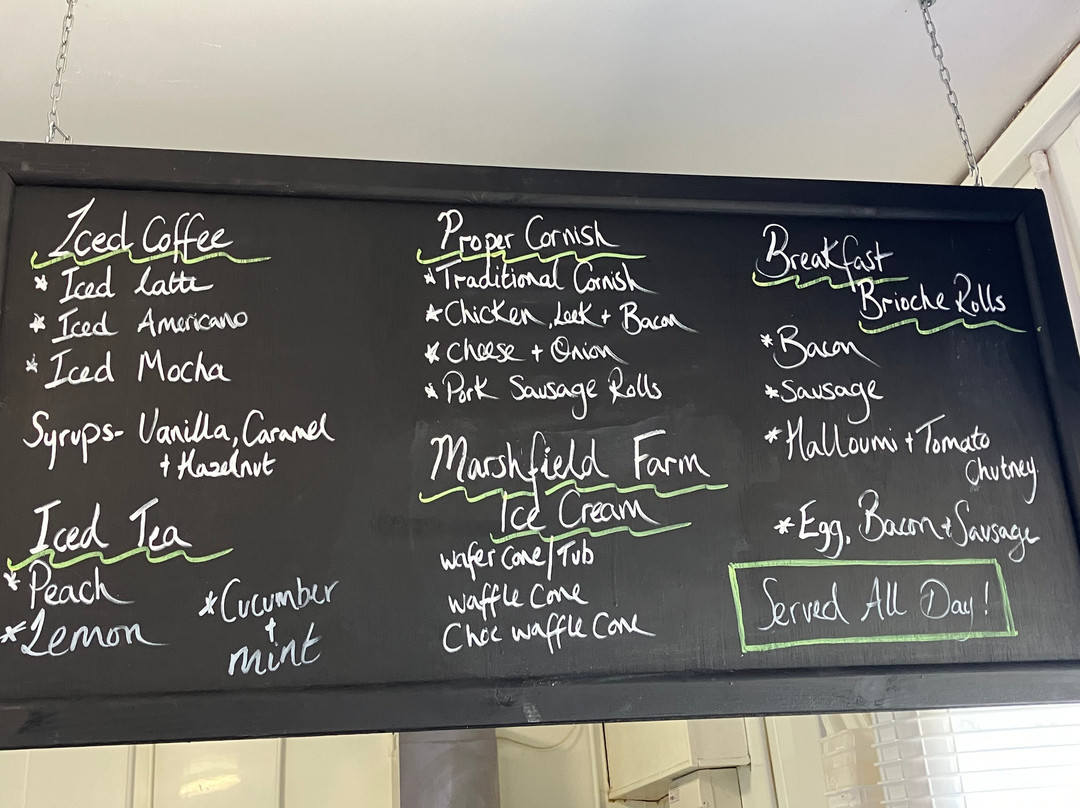 Iced Coffee
* Iced latte
* Iced Americano
* Iced Mocha
Syrups- Vanilla, Caramel
+ Hazelnut
Iced Tea
* Peach
* Lemon
* Cucumber
+
mint
Proper Cornish
* Traditional Cornish
* Chicken, Leek + Bacon
* Cheese + Onion
* Pork Sausage Rolls
Marshfield Farm
Ice Cream
wafer cone/Tub
waffle cone
Choc waffle cone
Breakfast
Brioche Rolls
* Bacon
* Sausage
* Halloumi + Tomato
Chutney
* Egg, Bacon + Sausage
Served All Day!